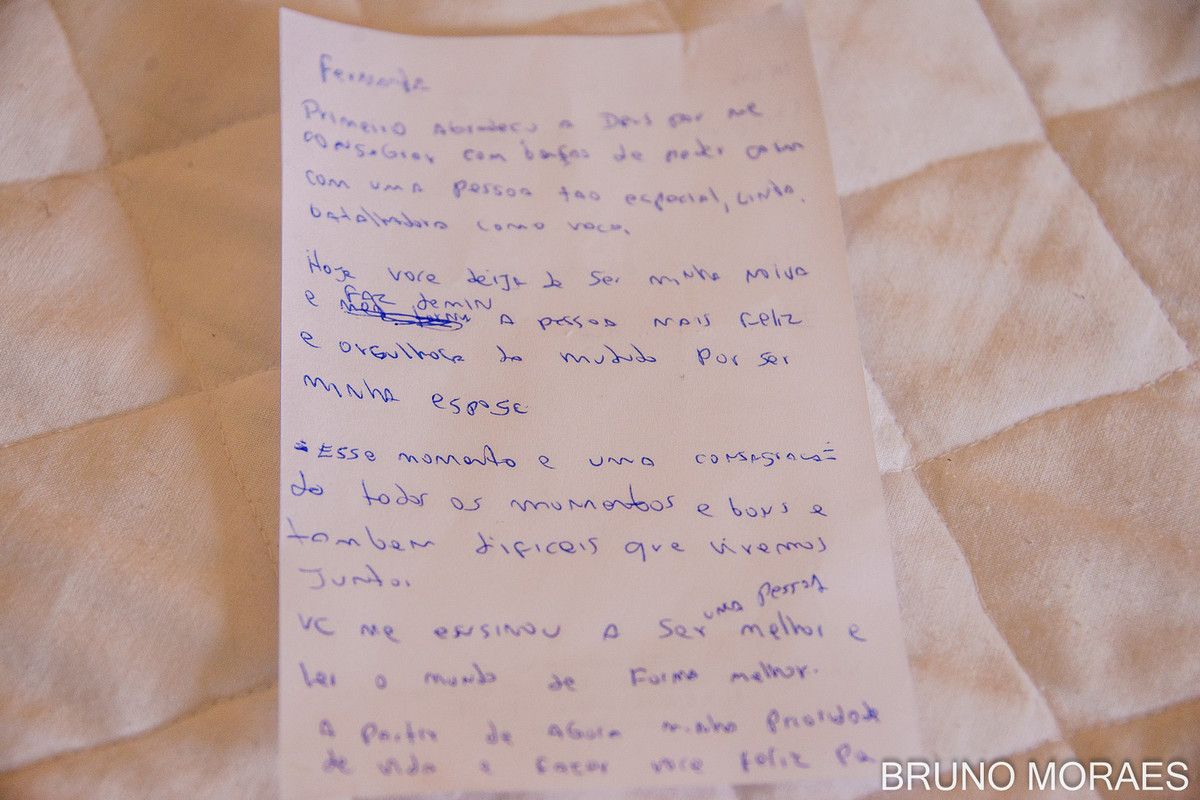 Fernanda
Primeiro Agradeço A Deus por me
com de poder casar
com uma pessoa tao especial, Linda,
batalhadora como voce.
Hoje voce deixa de ser minha noiva
e FAZ demin A pessoa mais Feliz
e orgulhosa do mundo por ser
minha esposa
Esse momento e uma
do todos os momentos e bons e
tambem dificeis que vivemos
Juntos
VC me ensinou A Ser uma pessoa melhor e
o mundo de Forma melhor.
A partir de Agora minha prioridade
de vida e fazer voce feliz
BRUNO MORAES